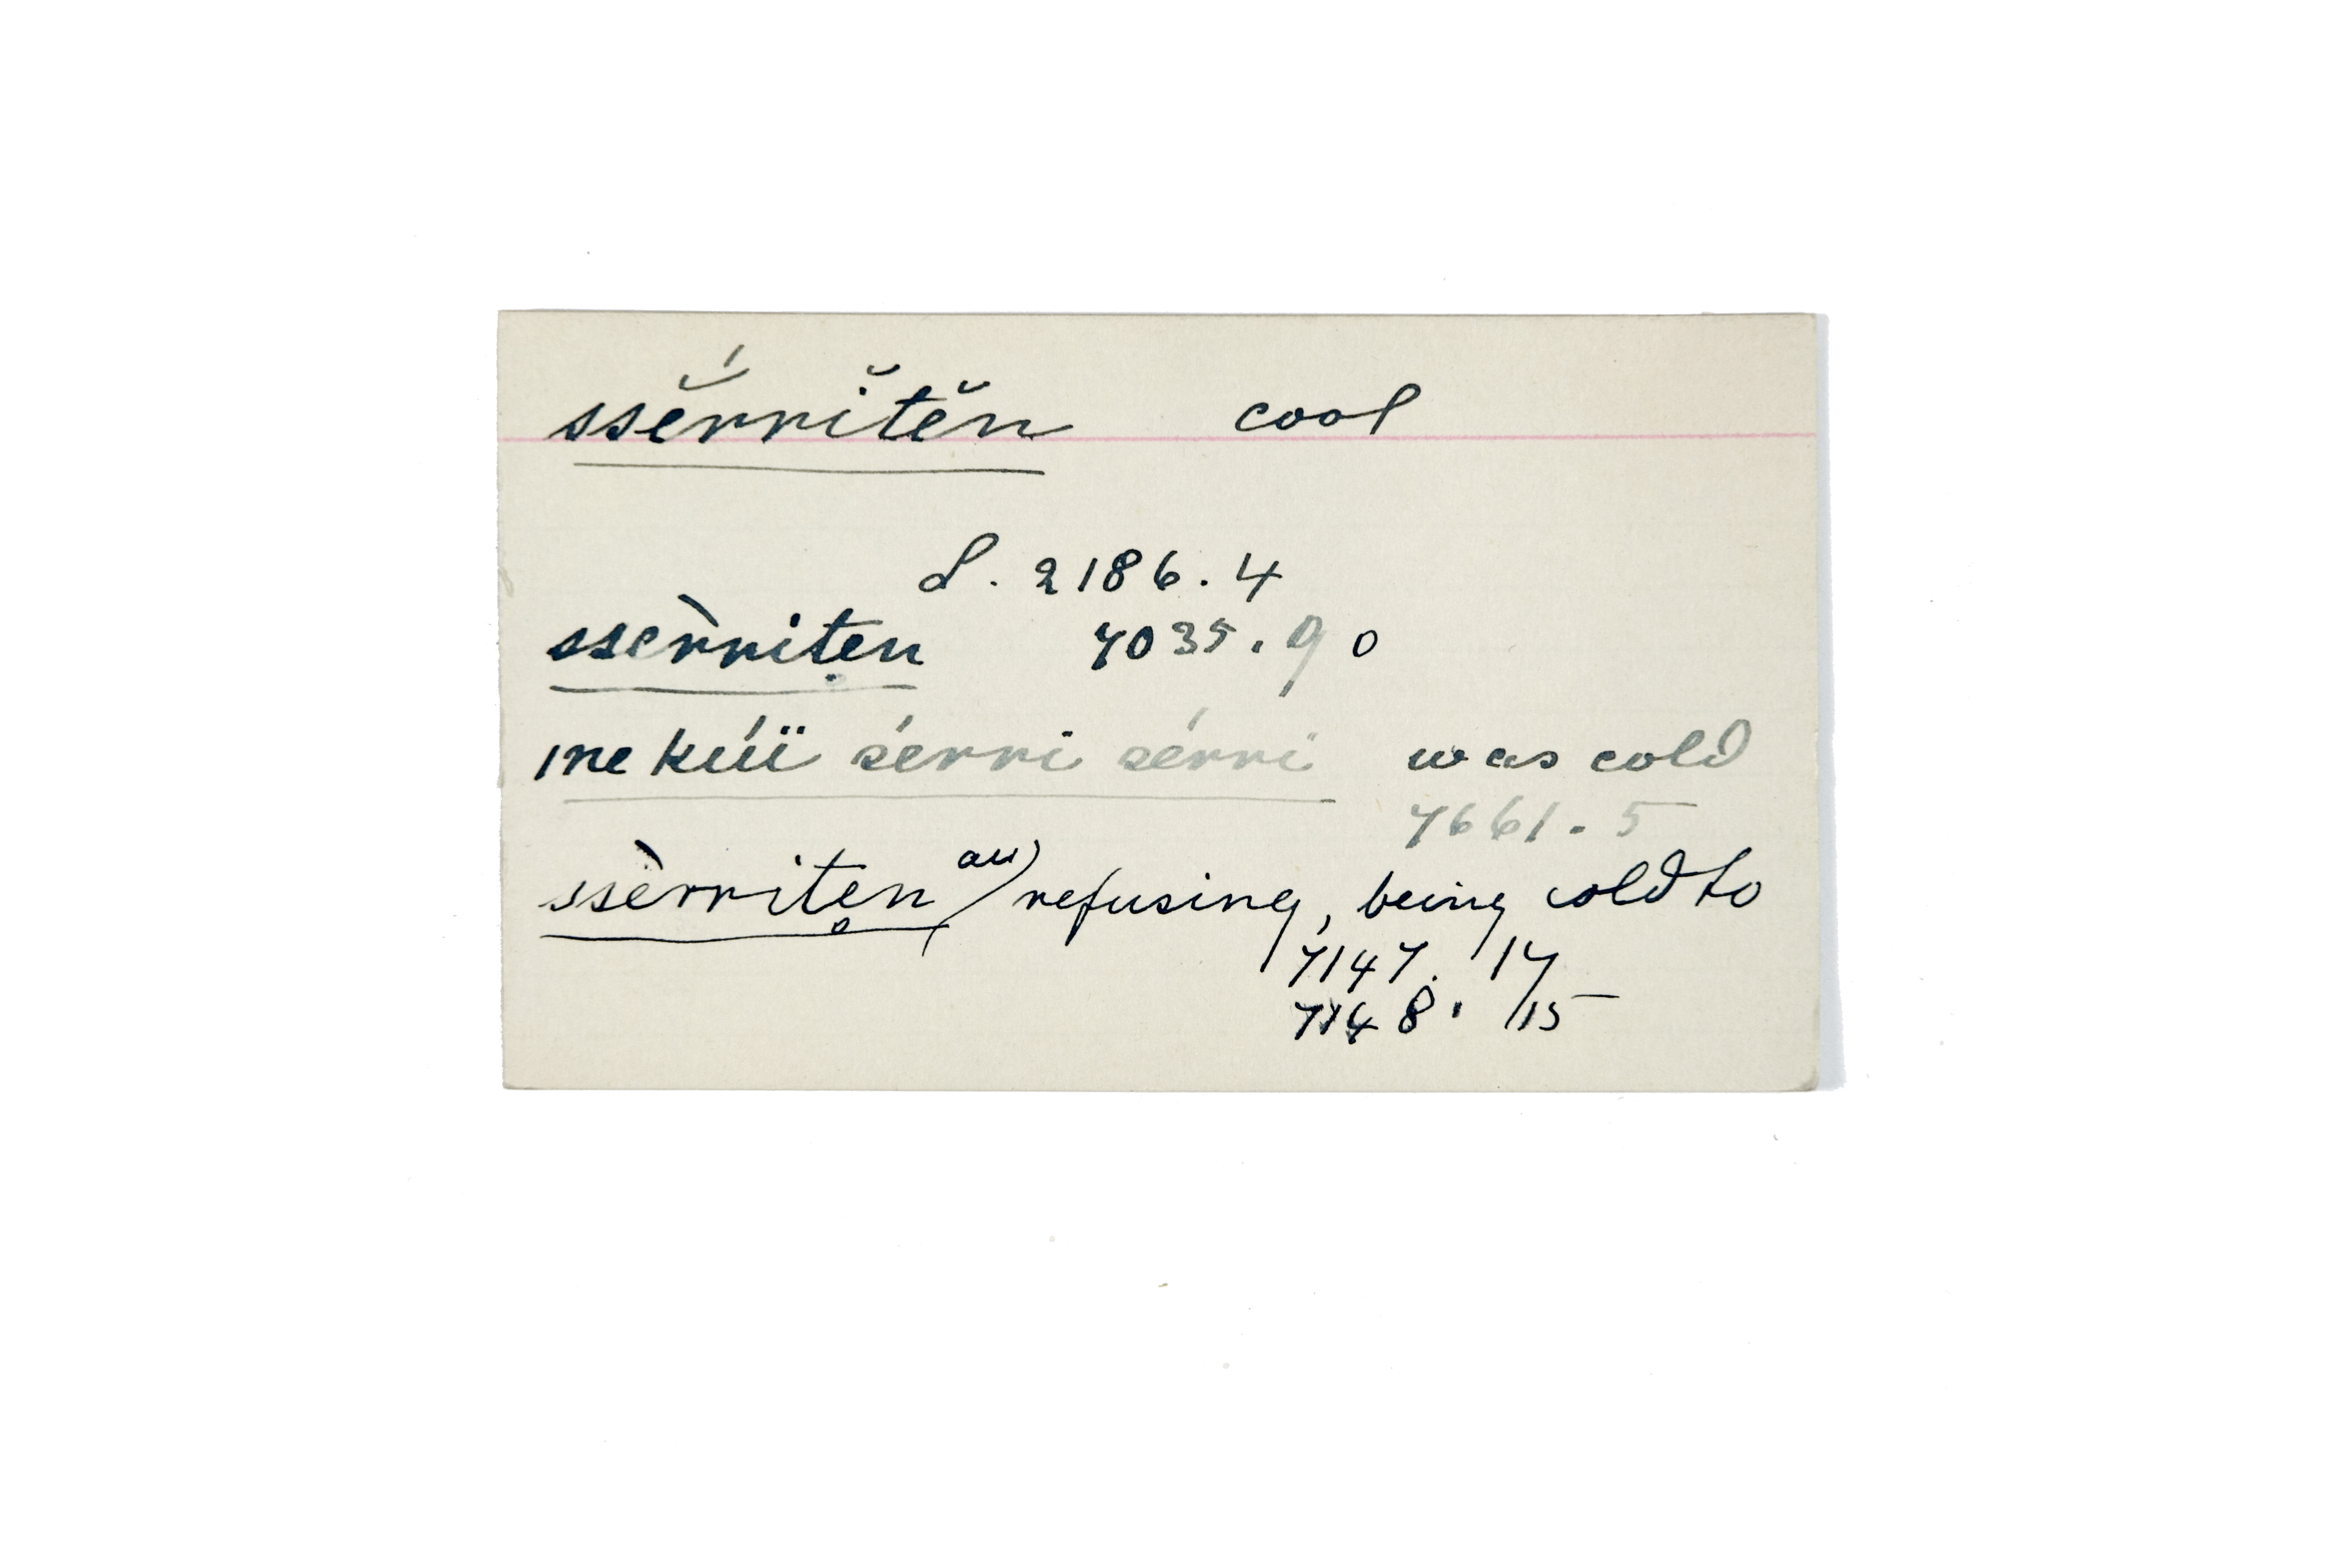 ssĕ́rrĭtĕn cool
L. 2186.4
ssèrriten 7035.90
me kúï sérri sérri was cold
7661.5
ssèrriten au) refusing, being cold to
7147. 17
7148. 15